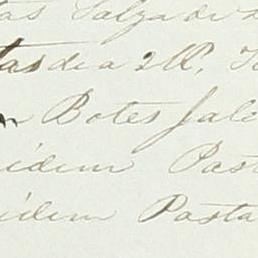 tas Salgadi
tas dia 2 R.
n Botes sal
idem Past
idem Pasta